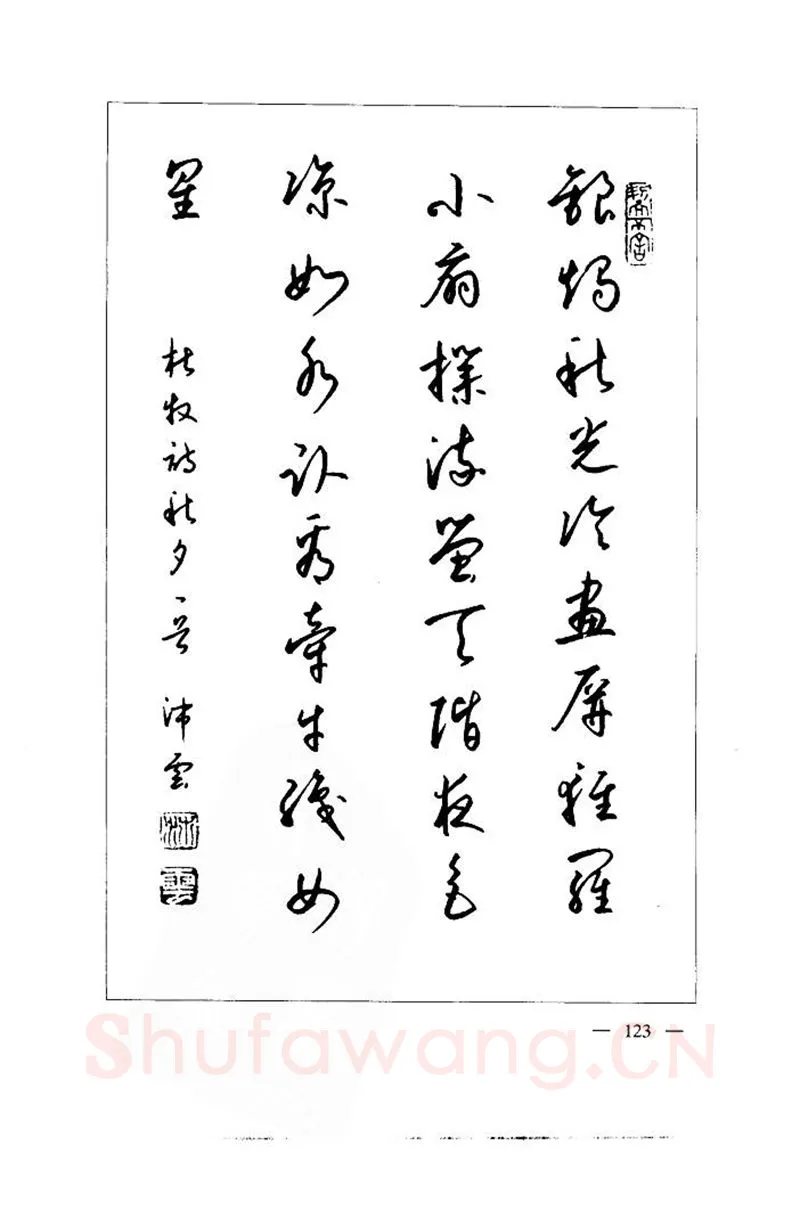 銀燭秋光冷畫屏輕羅
小扇撲流螢天階夜色
涼如水臥看牽牛織女
星
杜牧詩秋夕一首 沛雲
— 123 —
Shufawang.CN